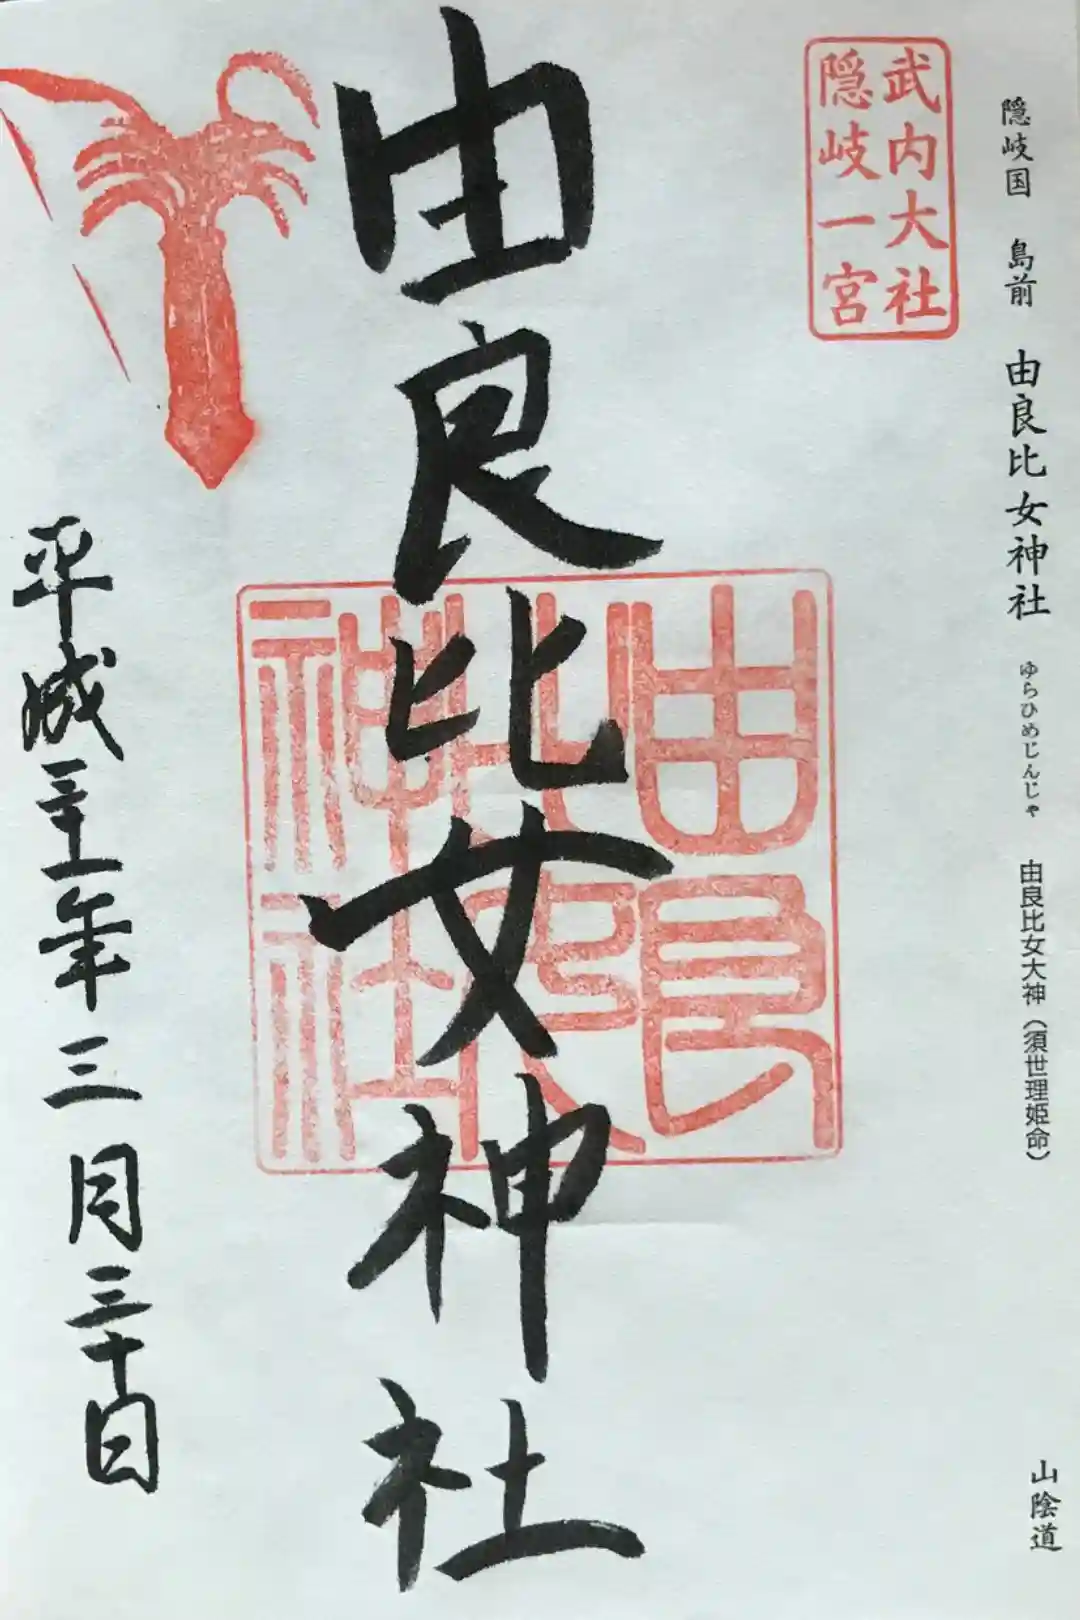 隠岐国 島前 由良比女神社 ゆらひめじんじゃ 由良比女大神（須世理姫命）
山陰道
武内大社
隠岐一宮
由良比女神社
由良
比女
神社
平成三十一年三月三十日